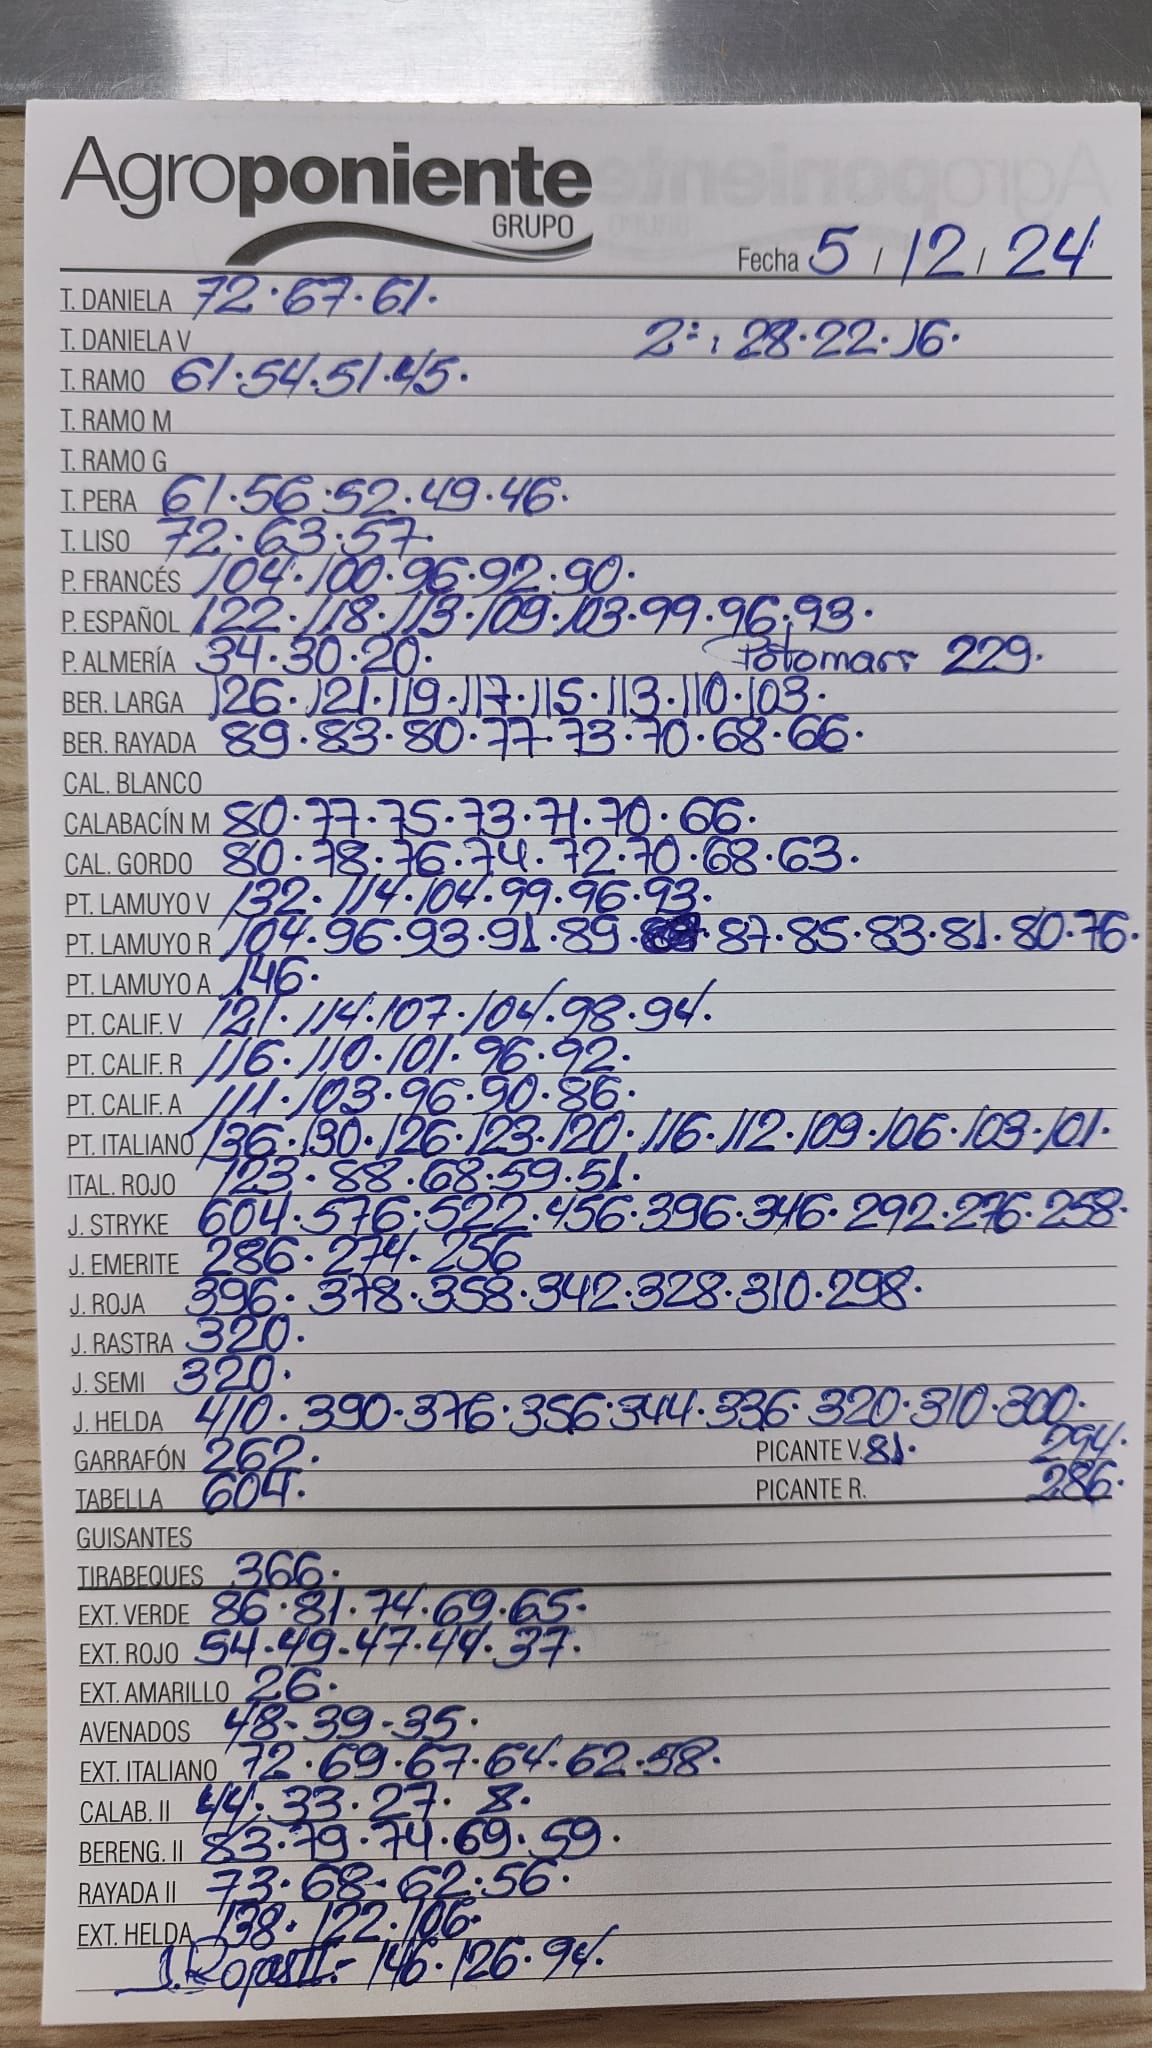 Agroponiente
GRUPO
Fecha 5 / 12 / 24
T. DANIELA 72.67.61.
T. DANIELA V 2ª: 28.22.16.
T. RAMO 61.54.51.45.
T. RAMO M
T. RAMO G
T. PERA 61.56.52.49.46.
T. LISO 72.63.57.
P. FRANCÉS 104.100.96.92.90.
P. ESPAÑOL 122.118.113.109.103.99.96.93.
P. ALMERÍA 34.30.20. Potomarr 229.
BER. LARGA 126.121.119.117.115.113.110.103.
BER. RAYADA 89.83.80.77.73.70.68.66.
CAL. BLANCO
CALABACÍN M 80.77.75.73.71.70.66.
CAL. GORDO 80.78.76.74.72.70.68.63.
PT. LAMUYO V 132.114.104.99.96.93.
PT. LAMUYO R 104.96.93.91.89. 87.85.83.81.80.76.
PT. LAMUYO A 146.
PT. CALIF. V 121.114.107.104.98.94.
PT. CALIF. R 116.110.101.96.92.
PT. CALIF. A 111.103.96.90.86.
PT. ITALIANO 136.130.126.123.120.116.112.109.106.103.101.
ITAL. ROJO 123.88.68.59.51.
J. STRYKE 604.576.522.456.396.346.292.276.258.
J. EMERITE 286.274.256
J. ROJA 396.378.358.342.328.310.298.
J. RASTRA 320.
J. SEMI 320.
J. HELDA 410.390.376.356.344.336.320.310.300.
GARRAFÓN 262. PICANTE V. 81. 294.
TABELLA 604. PICANTE R. 286.
GUISANTES
TIRABEQUES 366.
EXT. VERDE 86.81.74.69.65.
EXT. ROJO 54.49-47.44.37.
EXT. AMARILLO 26.
AVENADOS 48-39-35.
EXT. ITALIANO 72.69.67.64.62.58.
CALAB. II 44.33.27. 8.
BERENG. II 83.79.74.69.59.
RAYADA II 73.68-62.56.
EXT. HELDA 138.122.106.
J. Roja II.- 146.126.94.